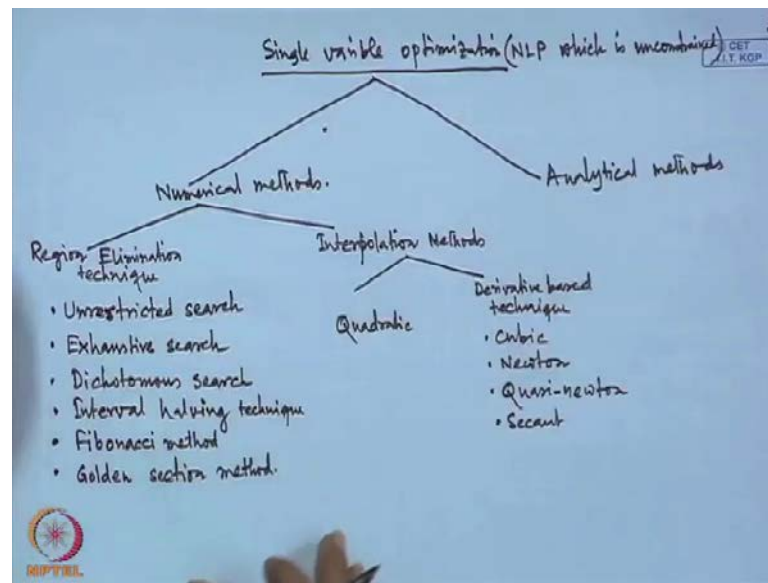 Single varible optimization (NLP which is unconstrained)
CET
I.I.T. KGP
Numerical methods.
Analytical methods
Region Elimination
technique
• Unrestricted search
• Exhaustive search
• Dichotomous search
• Interval halving technique
• Fibonacci method
• Golden section method.
Interpolation Methods
Quadratic
Derivative based
technique
• Cubic
• Newton
• Quasi-newton
• Secant
NPTEL